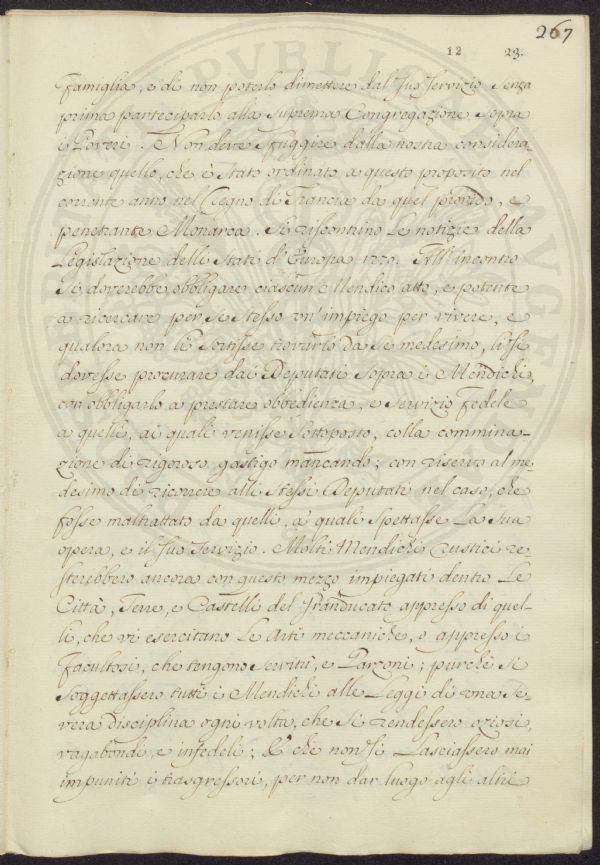 267
12 23.
Famiglia, e di non poterlo dimettere dal suo servizio senza
prima parteciparlo alla suprema Congregazione sopra
i Poveri. Non deve sfuggire dalla nostra considera-
zione quello, che è stato ordinato a questo proposito nel
corrente anno nel Regno di Francia da quel provido, e
penetrante Monarca. Si riscontrino le notizie della
Legislazione delli Stati d'Europa 1770. All'incontro
si doverebbe obbligare ciascun Mendico atto, e potente
a ricercare per se stesso un'impiego per vivere, e
qualora non li sortisse trovarlo da se medesimo, li si
dovesse procurare dai Deputati sopra i Mendichi,
con obbligarlo a prestare obbedienza, e servizio fedele
a quelli, ai quali venisse sottoposto, colla commina-
zione di rigoroso gastigo mancando; con riservo al me-
desimo di ricorrere alli stessi Deputati nel caso, che
fosse maltrattato da quelli, a quali spettasse la sua
opera, e il suo servizio. Molti Mendichi rustici re-
sterebbero ancora con questo mezzo impiegati dentro le
Città, Terre, e Castelli del Granducato appresso di quel-
li, che vi esercitano le Arti meccaniche, o appresso i
facultosi, che tengono servitù, e Garzoni; purchè si
soggettassero tutti i Mendichi alle Leggi di una se-
vera disciplina ogni volta, che si rendessero oziosi,
vagabondi, e infedeli; E che non si lasciassero mai
impuniti i trasgressori, per non dar luogo agli altri